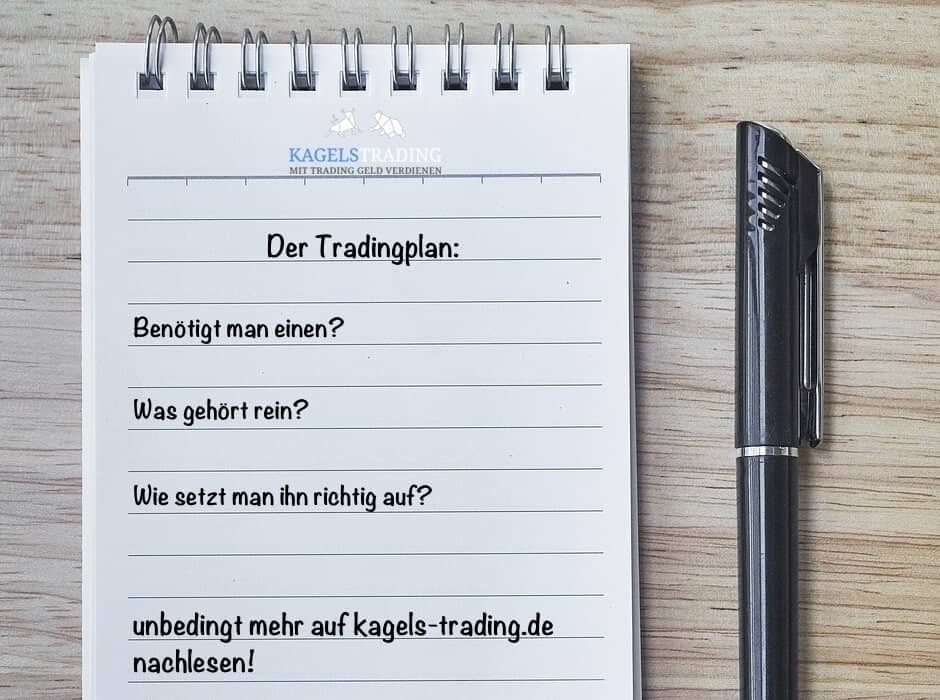 KAGELSTRADING
MIT TRADING GELD VERDIENEN
Der Tradingplan:
Benötigt man einen?
Was gehört rein?
Wie setzt man ihn richtig auf?
unbedingt mehr auf kagels-trading.de
nachlesen!